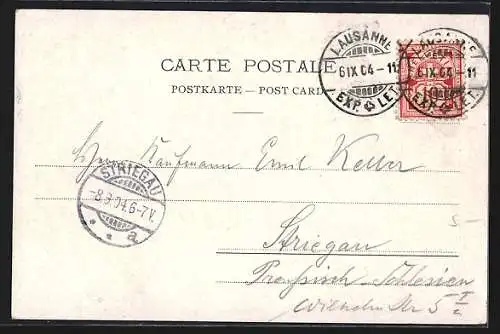 CARTE POSTALE
POSTKARTE – POST CARD
LAUSANNE
6 IX 04 – 11
EXP. LET.
LAUSANNE
6 IX 04 – 11
EXP. LET.
Herrn Kaufmann Emil Keller
STRIEGAU
-8.9.04.6-7V.
* * a
5-
Striegau
Preußisch-Schlesien
Wilhelm Str 5 I